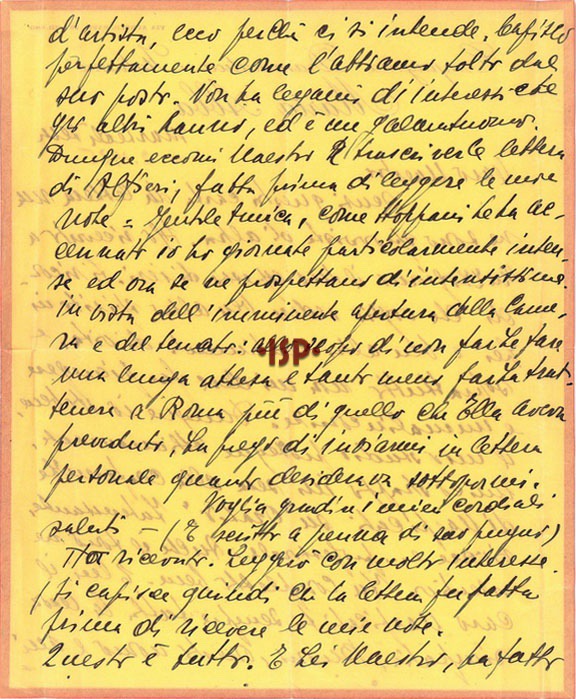 d'artista, ecco perchè ci si intende. Capisco
perfettamente come l'abbiamo tolto dal
suo posto. Non ha legami di interessi che
gli altri hanno, ed è un galantuomo.
Dunque eccomi Maestro a trascriverle lettera
di Alfieri, fatta prima di leggere le mie
note = Gentile Amica, come Stoppani le ha ac-
cennato io ho giornate particolarmente inten-
se ed ora se ne prospettano di intensissime
in vista dell'imminente apertura della Came-
ra e del Senato: allo scopo di non farLe fare
una lunga attesa e tanto meno farLa trat-
tenere a Roma più di quello che Ella aveva
preveduto, La prego di inviarmi in lettera
personale quanto desiderava sottopormi.
Voglia gradire i miei cordiali
saluti - (E scritto a penna di suo pugno)
ricevuto. Leggerò con molto interesse.
(si capisce quindi che la lettera fu fatta
prima di ricevere le mie note.
Questo è tutto. E Lei Maestro, ha fatto
·ISP·